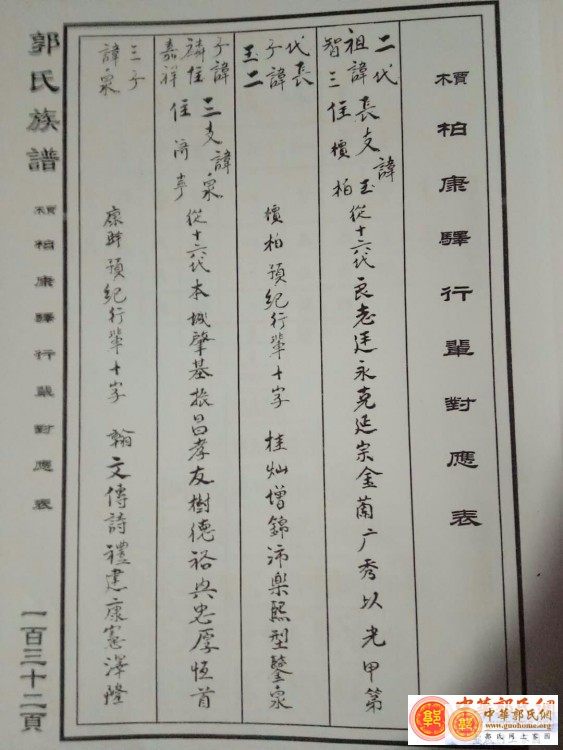 檟柏康驛行輩對應表
二代祖諱智三
長支諱玉住檟柏
從十六代良志廷永克延宗金蘭广秀以光甲第
代長子諱玉二
檟柏預紀行輩十字 桂灿增錦沛樂熙型鑒泉
子諱麟住嘉祥
三支諱泉住济寧
從十六代本城肇基振昌孝友樹德裕典忠厚恒首
三子諱泉
康驛預紀行輩十字 翰文傳詩禮建康憲澤隆
郭氏族譜
檟柏康驛行輩對應表
一百三十二頁
中華郭氏網
www.guoshihome.org
郭氏網上家園